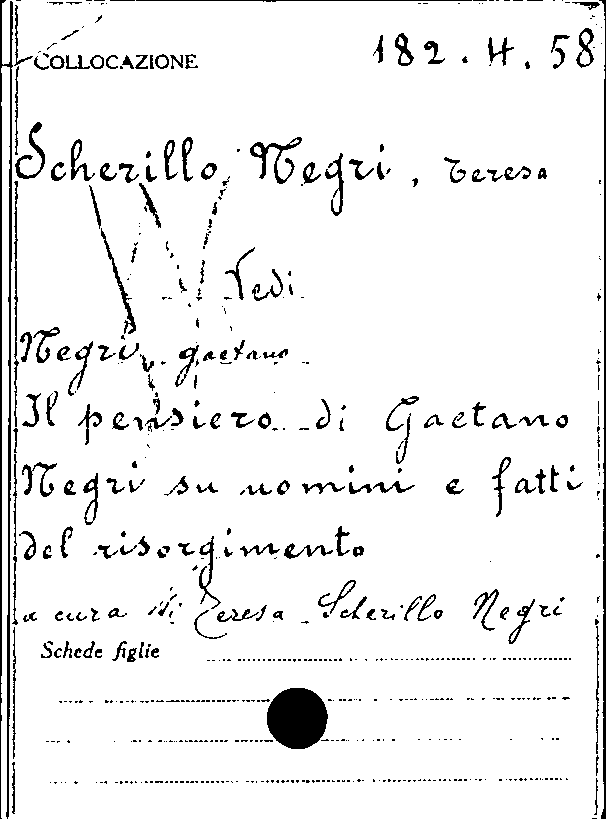 COLLOCAZIONE
182.H.58
Scherillo Negri, Teresa
Vedi
Negri, gaetano
Il pensiero di Gaetano
Negri su uomini e fatti
del risorgimento
a cura di Teresa Scherillo Negri
Schede figlie